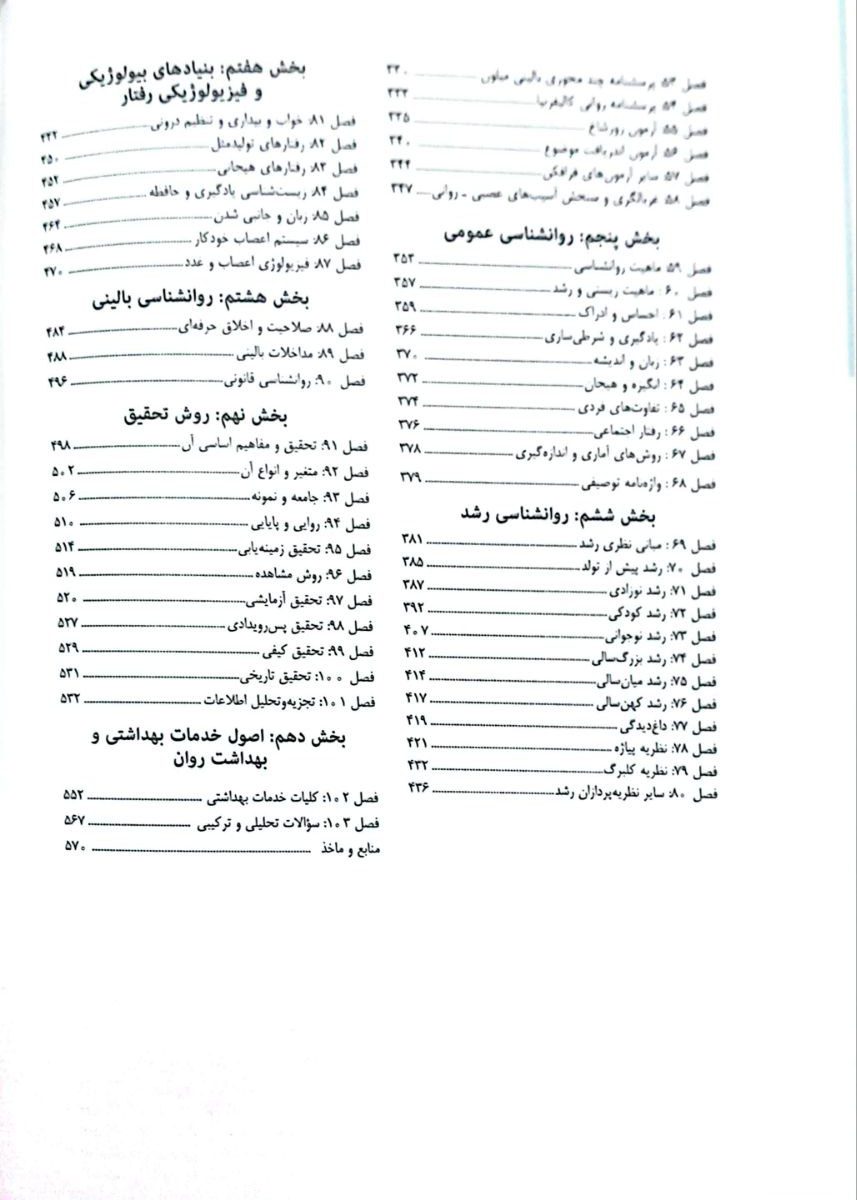 فصل ۵۳: پرسشنامه چند محوری بالینی میلون ۳۳۰
فصل ۵۴: پرسشنامه روانی کالیفرنیا ۳۳۳
فصل ۵۵: آزمون رورشاخ ۳۳۵
فصل ۵۶: آزمون اندریافت موضوع ۳۴۰
فصل ۵۷: سایر آزمون‌های فرافکن ۳۴۴
فصل ۵۸: غربالگری و سنجش آسیب‌های عصبی ـ روانی ۳۴۷
بخش پنجم: روانشناسی عمومی
فصل ۵۹: ماهیت روانشناسی ۳۵۳
فصل ۶۰: ماهیت زیستی و رشد ۳۵۷
فصل ۶۱: احساس و ادراک ۳۵۹
فصل ۶۲: یادگیری و شرطی‌سازی ۳۶۶
فصل ۶۳: زبان و اندیشه ۳۷۰
فصل ۶۴: انگیزه و هیجان ۳۷۲
فصل ۶۵: تفاوت‌های فردی ۳۷۴
فصل ۶۶: رفتار اجتماعی ۳۷۶
فصل ۶۷: روش‌های آماری و اندازه‌گیری ۳۷۸
فصل ۶۸: واژه‌نامه توصیفی ۳۷۹
بخش ششم: روانشناسی رشد
فصل ۶۹: مبانی نظری رشد ۳۸۱
فصل ۷۰: رشد پیش از تولد ۳۸۵
فصل ۷۱: رشد نوزادی ۳۸۷
فصل ۷۲: رشد کودکی ۳۹۲
فصل ۷۳: رشد نوجوانی ۴۰۷
فصل ۷۴: رشد بزرگ‌سالی ۴۱۲
فصل ۷۵: رشد میان‌سالی ۴۱۴
فصل ۷۶: رشد کهن‌سالی ۴۱۷
فصل ۷۷: داغ‌دیدگی ۴۱۹
فصل ۷۸: نظریه پیاژه ۴۲۱
فصل ۷۹: نظریه کلبرگ ۴۳۲
فصل ۸۰: سایر نظریه‌پردازان رشد ۴۳۶
بخش هفتم: بنیادهای بیولوژیکی
و فیزیولوژیکی رفتار
فصل ۸۱: خواب و بیداری و تنظیم درونی ۴۴۲
فصل ۸۲: رفتارهای تولیدمثل ۴۵۰
فصل ۸۳: رفتارهای هیجانی ۴۵۲
فصل ۸۴: زیست‌شناسی یادگیری و حافظه ۴۵۷
فصل ۸۵: زبان و جانبی شدن ۴۶۴
فصل ۸۶: سیستم اعصاب خودکار ۴۶۸
فصل ۸۷: فیزیولوژی اعصاب و غدد ۴۷۰
بخش هشتم: روانشناسی بالینی
فصل ۸۸: صلاحیت و اخلاق حرفه‌ای ۴۸۴
فصل ۸۹: مداخلات بالینی ۴۸۸
فصل ۹۰: روانشناسی قانونی ۴۹۶
بخش نهم: روش تحقیق
فصل ۹۱: تحقیق و مفاهیم اساسی آن ۴۹۸
فصل ۹۲: متغیر و انواع آن ۵۰۲
فصل ۹۳: جامعه و نمونه ۵۰۶
فصل ۹۴: روایی و پایایی ۵۱۰
فصل ۹۵: تحقیق زمینه‌یابی ۵۱۴
فصل ۹۶: روش مشاهده ۵۱۹
فصل ۹۷: تحقیق آزمایشی ۵۲۰
فصل ۹۸: تحقیق پس‌رویدادی ۵۲۷
فصل ۹۹: تحقیق کیفی ۵۲۹
فصل ۱۰۰: تحقیق تاریخی ۵۳۱
فصل ۱۰۱: تجزیه‌وتحلیل اطلاعات ۵۳۲
بخش دهم: اصول خدمات بهداشتی و
بهداشت روان
فصل ۱۰۲: کلیات خدمات بهداشتی ۵۵۲
فصل ۱۰۳: سؤالات تحلیلی و ترکیبی ۵۶۷
منابع و ماخذ ۵۷۰